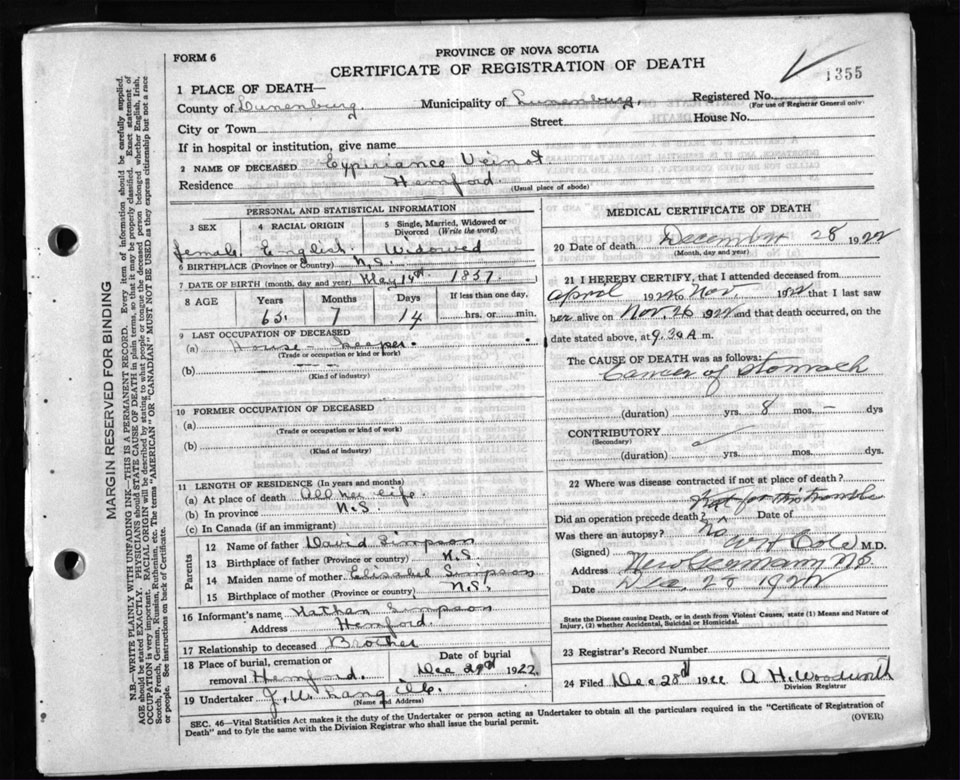 FORM 6
PROVINCE OF NOVA SCOTIA
CERTIFICATE OF REGISTRATION OF DEATH
1355
1 PLACE OF DEATH—
County of Lunenburg. Municipality of Lunenburg. Registered No.
(For use of Registrar General only)
City or Town Street House No.
If in hospital or institution, give name
2 NAME OF DECEASED Expiriance Veinot
Residence Hemford.
(Usual place of abode)
PERSONAL AND STATISTICAL INFORMATION
3 SEX 4 RACIAL ORIGIN 5 Single, Married, Widowed or Divorced (Write the word)
female English. Widowed
6 BIRTHPLACE (Province or Country) N.S.
7 DATE OF BIRTH (month, day and year) May 14th 1857.
8 AGE Years Months Days If less than one day,
65. 7 14 hrs. or min.
9 LAST OCCUPATION OF DECEASED
(a) House-keeper.
(Trade or occupation or kind of work)
(b)
(Kind of industry)
10 FORMER OCCUPATION OF DECEASED
(a)
(Trade or occupation or kind of work)
(b)
(Kind of industry)
11 LENGTH OF RESIDENCE (In years and months)
(a) At place of death All her life.
(b) In province N.S.
(c) In Canada (if an immigrant)
Parents
12 Name of father David Simpson
13 Birthplace of father (Province or country) N.S.
14 Maiden name of mother Elisabel Simpson
15 Birthplace of mother (Province or country) N.S.
16 Informant's name Nathan Simpson
Address Hemford.
17 Relationship to deceased Brother
18 Place of burial, cremation or removal Hemford. Date of burial Dec 29th 1922
19 Undertaker J. W. Langille.
(Name and Address)
MEDICAL CERTIFICATE OF DEATH
20 Date of death December 28 1922
(Month, day and year)
21 I HEREBY CERTIFY, that I attended deceased from
April 1922 to Nov. 1922 that I last saw
her alive on Nov. 26 1922 and that death occurred, on the
date stated above, at 9.30 A m.
The CAUSE OF DEATH was as follows:
Cancer of Stomach
(duration) yrs. 8 mos. – dys
CONTRIBUTORY
(Secondary)
(duration) yrs. mos. dys.
22 Where was disease contracted if not at place of death?
Did an operation precede death? Not for this trouble Date of
Was there an autopsy? No
(Signed) Cole M.D.
Address New Germany N.S.
Date Dec. 28 1922
State the Disease causing Death, or in death from Violent Causes, state (1) Means and Nature of Injury, (2) whether Accidental, Suicidal or Homicidal.
23 Registrar's Record Number
24 Filed Dec 28th 1922 A H Woodworth
Division Registrar
SEC. 46—Vital Statistics Act makes it the duty of the Undertaker or person acting as Undertaker to obtain all the particulars required in the "Certificate of Registration of
Death" and to fyle the same with the Division Registrar who shall issue the burial permit.
(OVER)
MARGIN RESERVED FOR BINDING
N.B.—WRITE PLAINLY WITH UNFADING INK—THIS IS A PERMANENT RECORD. Every item of information should be carefully supplied.
AGE should be stated EXACTLY. PHYSICIANS should STATE CAUSE OF DEATH in plain terms, so that it may be properly classified. Exact statement of
OCCUPATION is very important. RACIAL ORIGIN will be described by stating to what people or tongue the deceased person belonged whether English, Irish,
Scotch, French, German, Russian, Ruthenian, etc. The terms "AMERICAN" or "CANADIAN" MUST NOT BE USED as they express citizenship but not a race
or people. See instructions on back of Certificate.